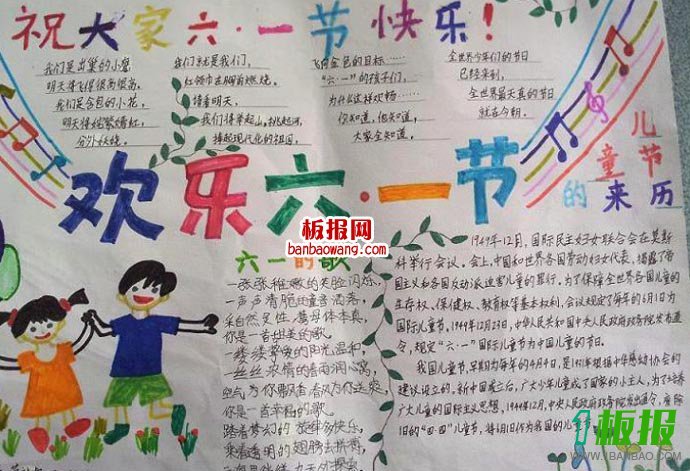 祝大家六·一节快乐!
我们是出巢的小鹰
明天将飞得很高很高。
我们是含苞的小花,
明天将姹紫嫣红,
分外妖娆。
我们就是我们,
红领巾在胸前燃烧。
读着明天,
我们将举起山,挑起河,
撑起现代化的祖国。
飞向金色的目标……
“六·一”的孩子们,
为什么这样欢畅……
你知道,他知道,
大家全知道。
全世界少年们的节日
已经来到,
全世界最天真的节日
就在今朝。
欢乐六·一节
儿童节的来历
板报网
banbaowang.com
六一的歌
一张张稚嫩的笑脸闪烁,
一声声清脆的童音洒落,
采自然灵性,
你是一首甜美的歌。
一缕缕挚爱的阳光温和,
一丝丝浓情的春雨润心窝,
你是一首幸福的歌。
踏着梦幻的旋律多快乐,
乘着透明的翅膀去抚摸,
1949年12月,国际民主妇女联合会在莫斯
科举行会议。会上,中国和世界各国劳动妇女代表,揭露了帝
国主义和各国反动派迫害儿童的罪行。为了保障全世界各国儿童的
生存权、保健权、教育权等基本权利,会议规定了每年的6月1日为
国际儿童节。1949年12月23日,中华人民共和国中央人民政府政务院发布通
令,规定“六·一”国际儿童节为中国儿童节日。
我国儿童节,早期为每年的4月4日,是1931年根据中华慈幼协会的
建议设立的。新中国成立后,广大少年儿童成了国家的小主人,为了培养
广大儿童的国际主义思想,1949年12月,中央人民政府政务院发出通令,废除
旧的“四·四”儿童节,将6月1日作为我国的儿童节
1板报
WWW.1BANBAO.COM